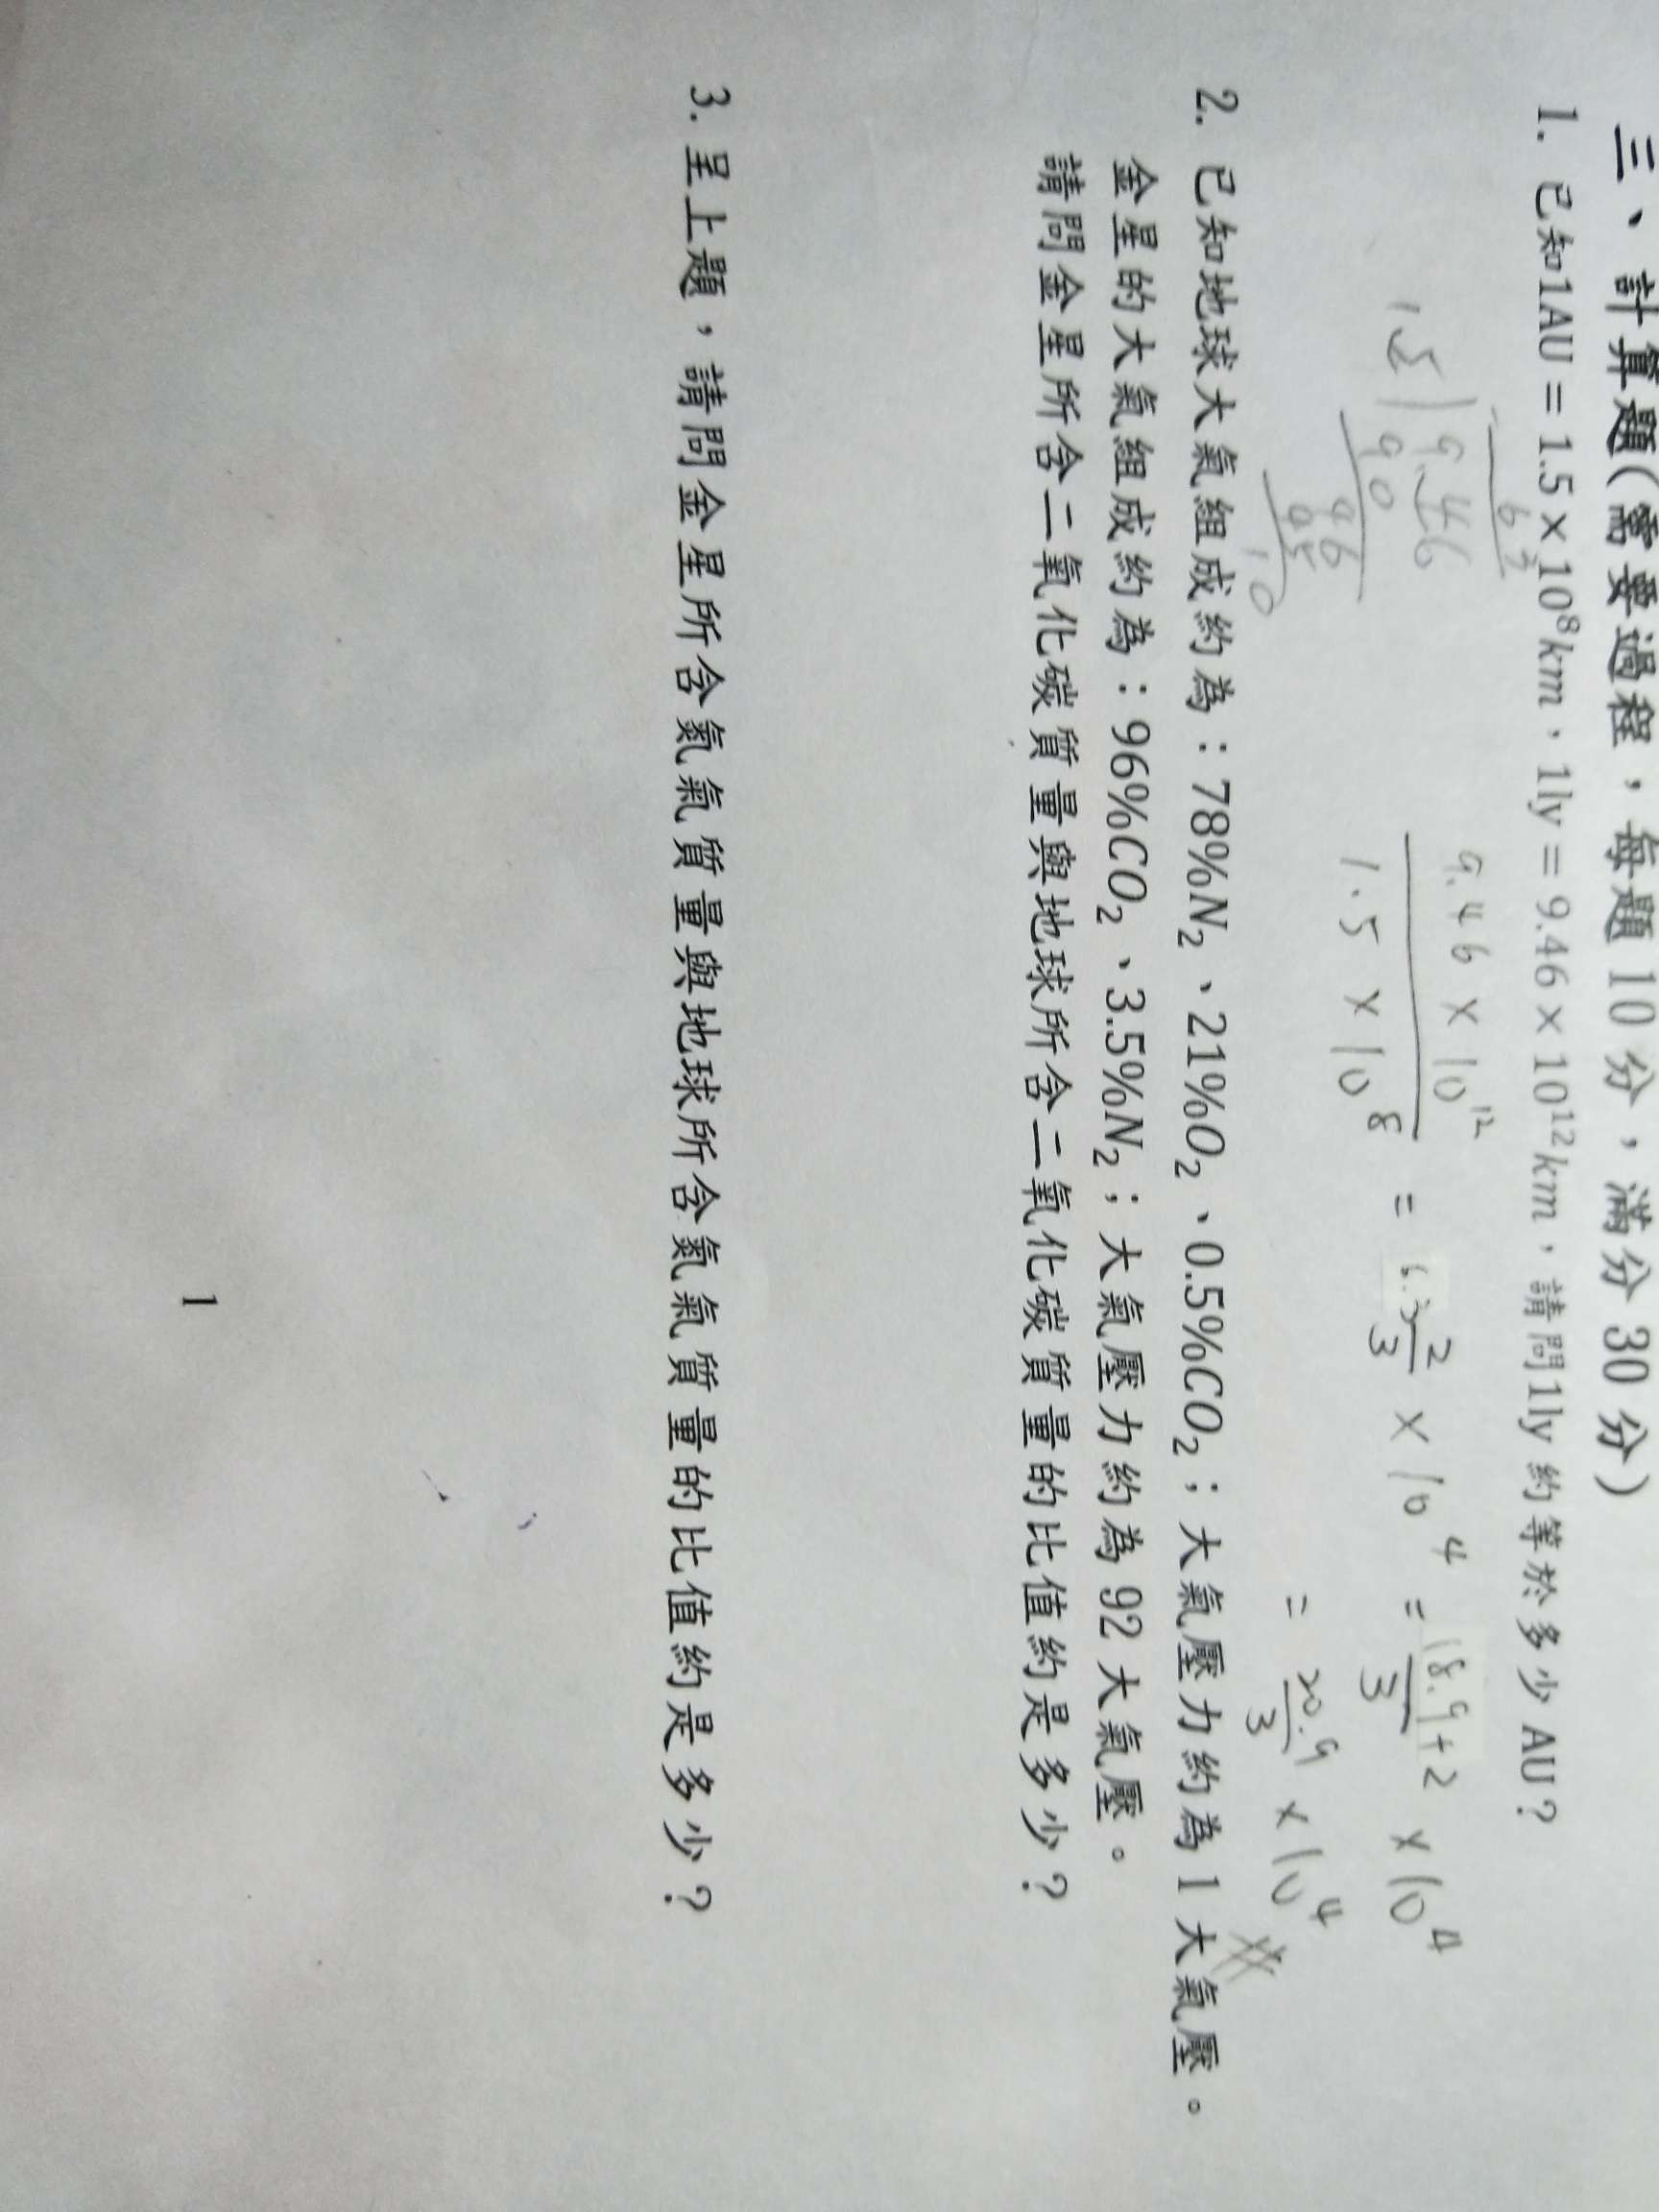 三、計算題(需要過程，每題 10 分，滿分 30 分)
1. 已知1AU = 1.5 × 10⁸km，1ly = 9.46 × 10¹²km，請問1ly 約等於多少 AU?
6 3
15 9.46
90
46
45
10
9.46 × 10¹² / 1.5 × 10⁸ = 6.3 2/3 × 10⁴ = 18.9+2 / 3 × 10⁴
= 20.9 / 3 × 10⁴
2. 已知地球大氣組成約為：78%N₂、21%O₂、0.5%CO₂；大氣壓力約為 1 大氣壓。
金星的大氣組成約為：96%CO₂、3.5%N₂；大氣壓力約為 92 大氣壓。
請問金星所含二氧化碳質量與地球所含二氧化碳質量的比值約是多少?
3. 呈上題，請問金星所含氮氣質量與地球所含氮氣質量的比值約是多少?
1